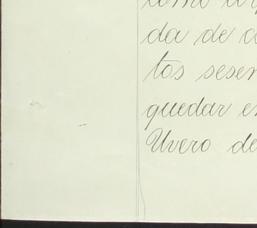 como
da de
tos sesen
quedar
Uvero de